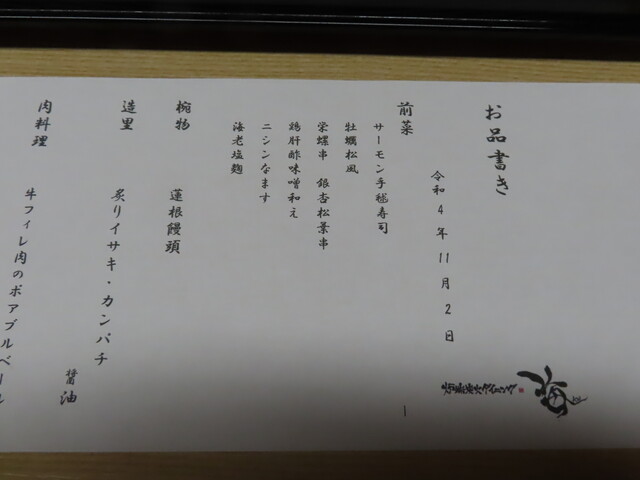 お品書き
令和4年11月2日
前菜
サーモン手毬寿司
牡蠣松風
栄螺串 銀杏松葉串
鶏肝酢味噌和え
ニシンなます
海老塩麹
椀物 蓮根饅頭
造里 炙りイサキ・カンパチ
醤油
肉料理 牛フィレ肉のポアブルベール